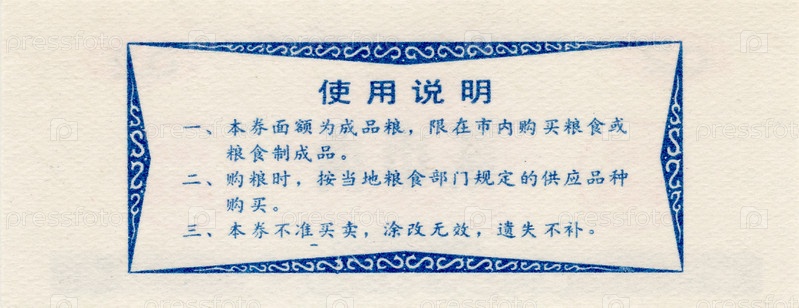 使用说明
一、本券面额为成品粮，限在市内购买粮食或
粮食制成品。
二、购粮时，按当地粮食部门规定的供应品种
购买。
三、本券不准买卖，涂改无效，遗失不补。